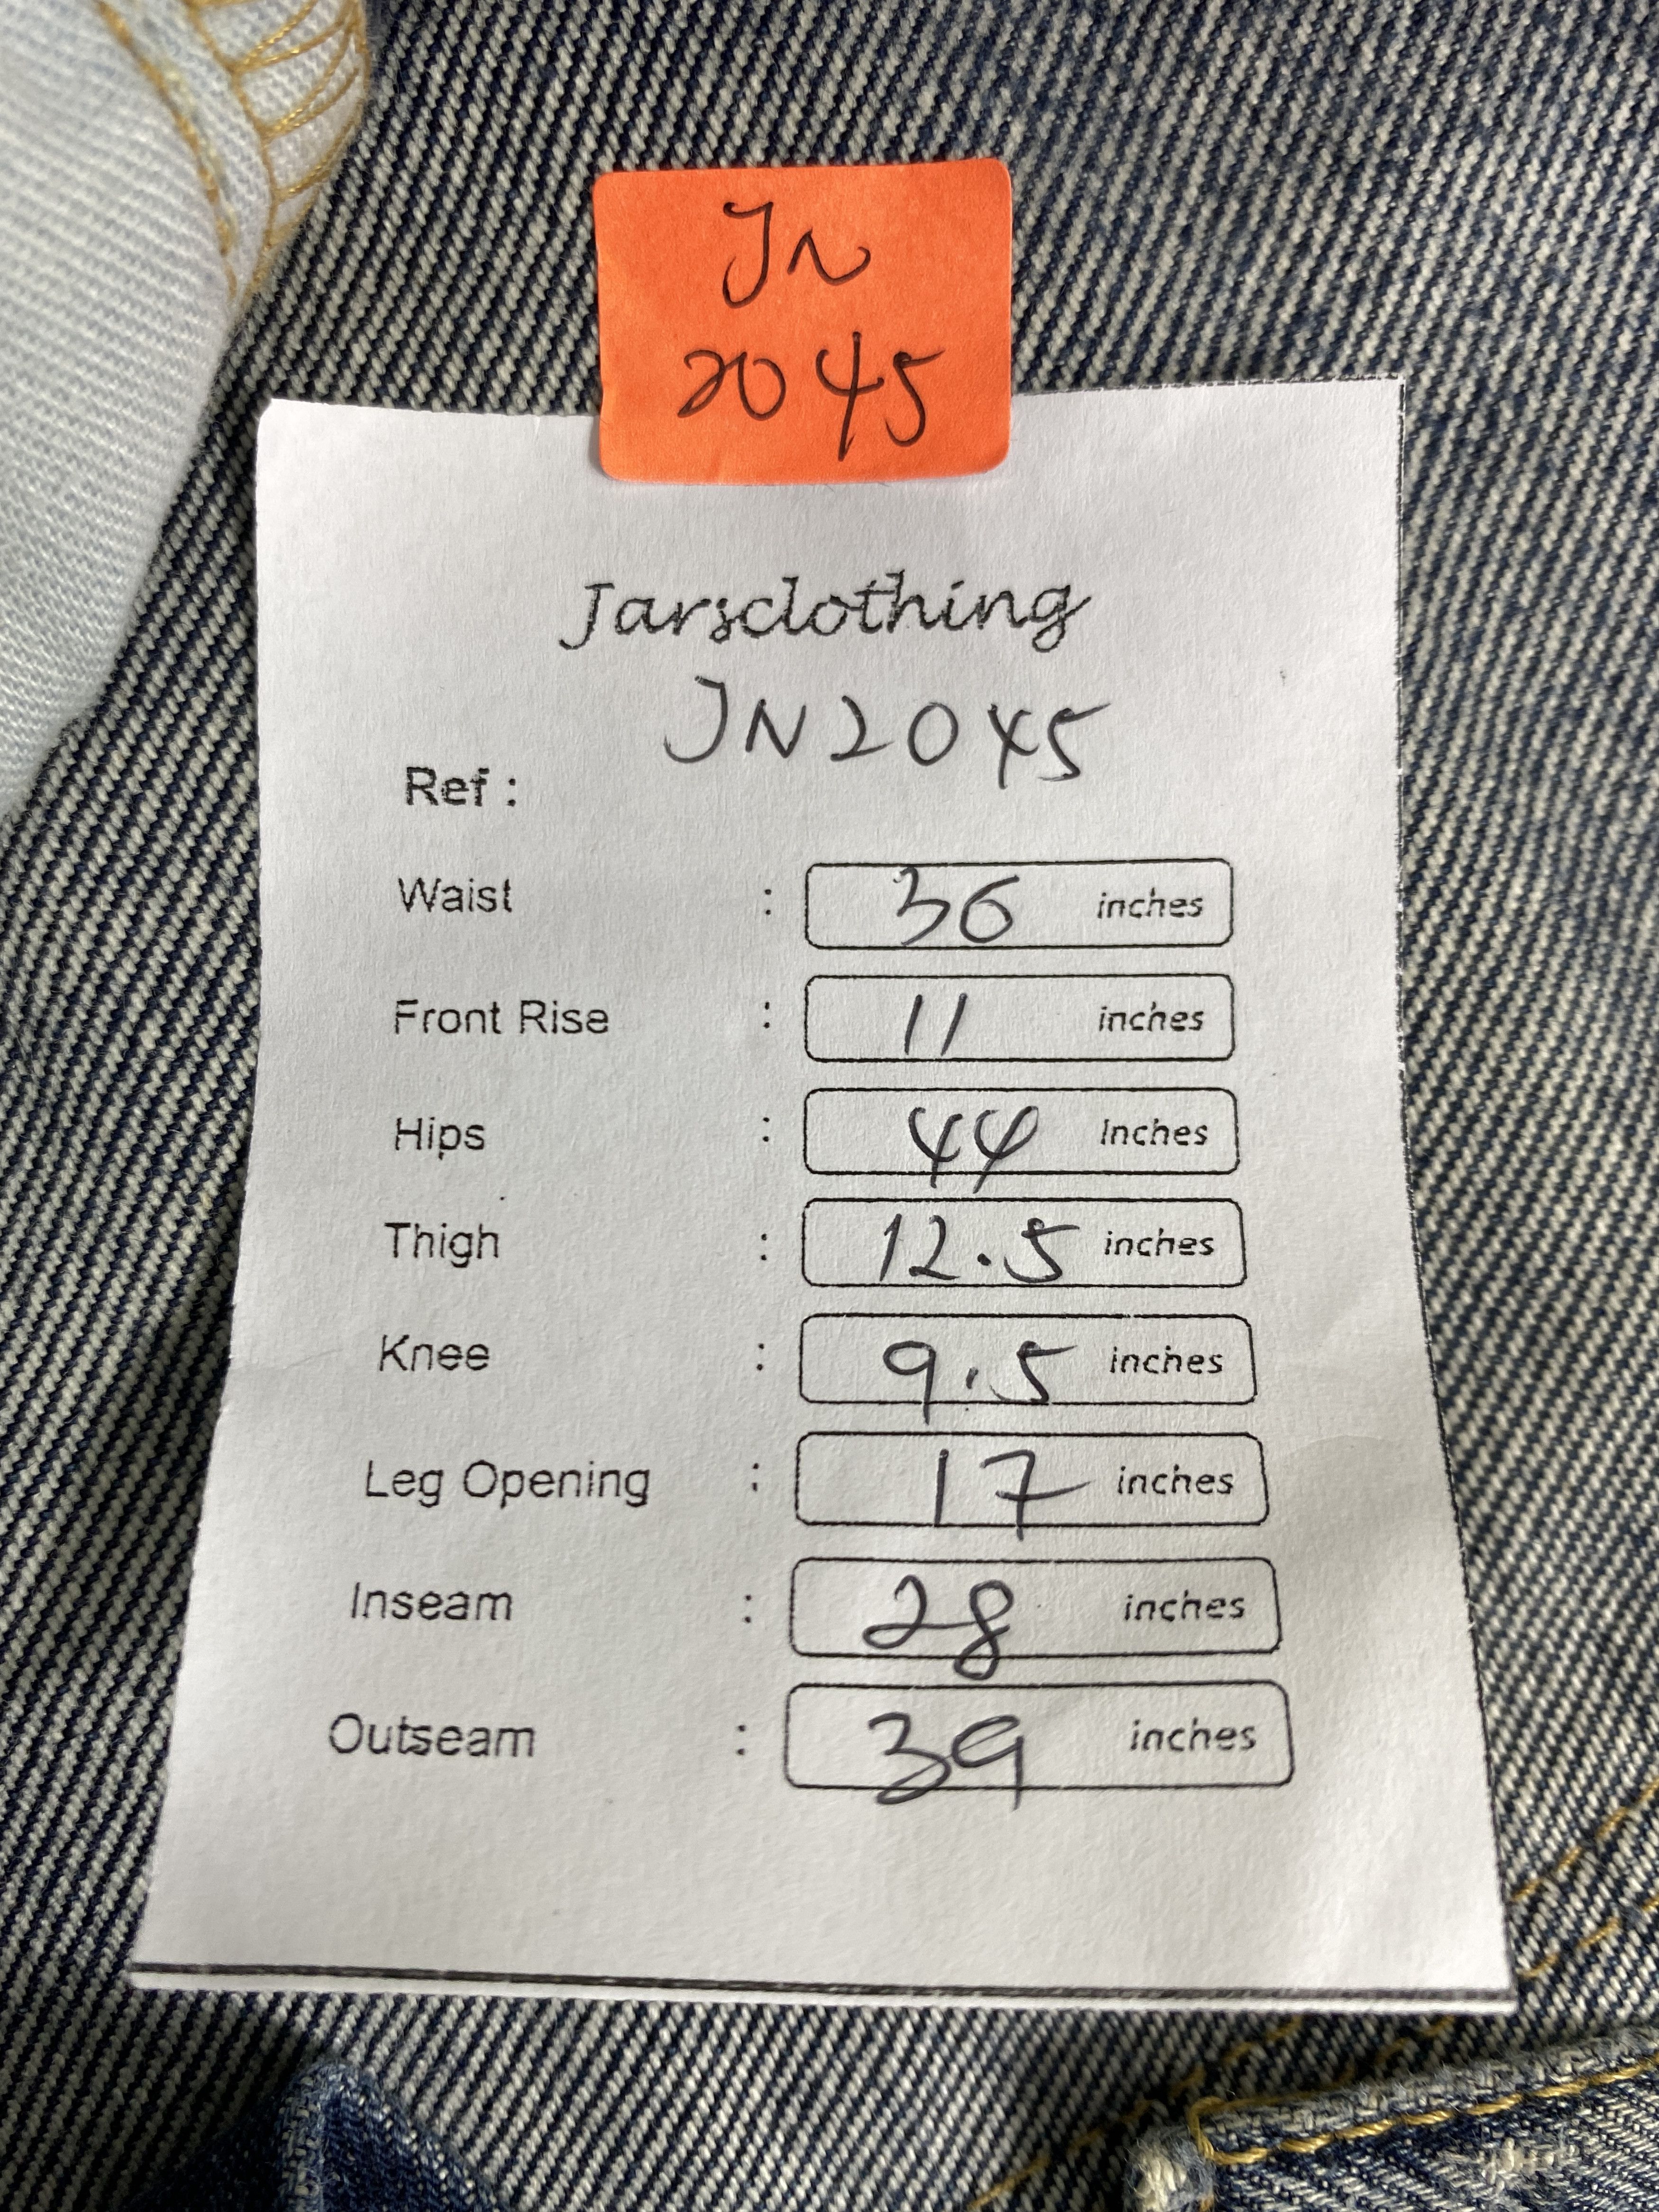 JN
2045
Jarsclothing
JN2045
Ref :
Waist : 36 inches
Front Rise : 11 inches
Hips : 44 Inches
Thigh : 12.5 inches
Knee : 9.5 inches
Leg Opening : 17 inches
Inseam : 28 inches
Outseam : 39 inches